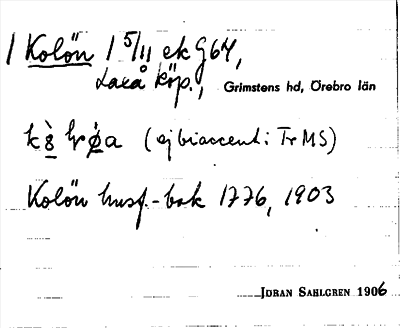 1 Kolön 1 5/11 ek 9G4,
Laxå köp., Grimstens hd, Örebro län
(ej biaccent: Tr MS)
Kolön husf.-bok 1776, 1903
JÖRAN SAHLGREN 1906